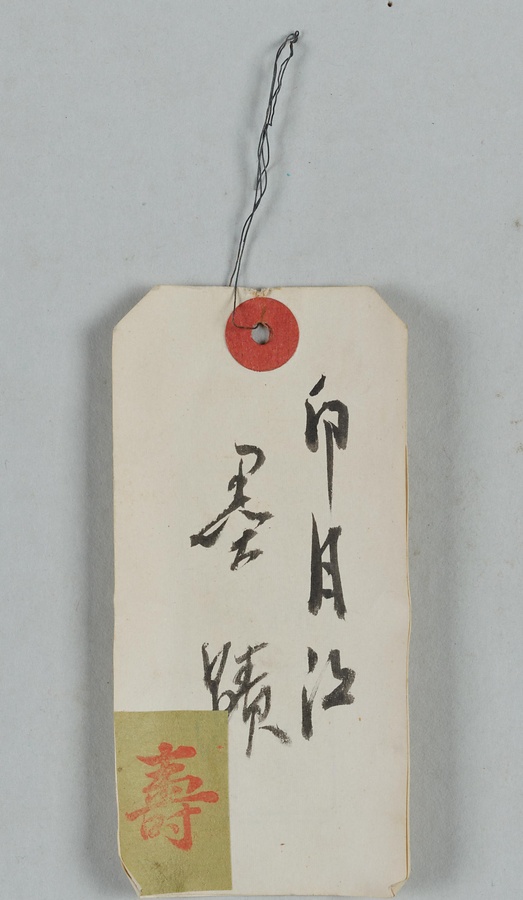 印月江
墨蹟
壽